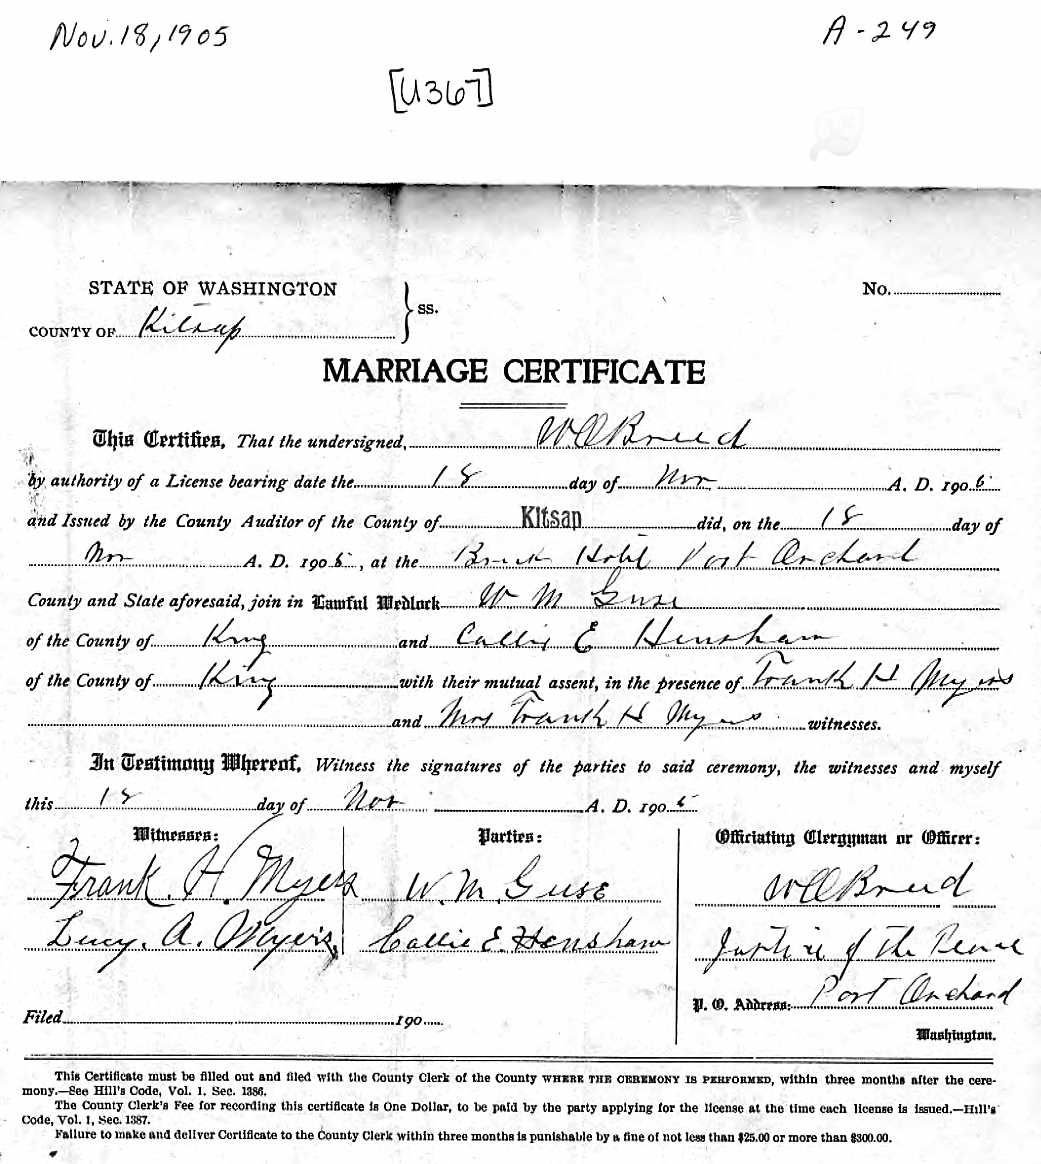 Nov. 18, 1905
A-249
[U367]
STATE OF WASHINGTON
COUNTY OF Kitsap
} ss.
No.
MARRIAGE CERTIFICATE
This Certifies, That the undersigned, W A Breed
by authority of a License bearing date the 18 day of Nov A. D. 1905
and Issued by the County Auditor of the County of Kitsap did, on the 18 day of
Nov A. D. 1905, at the Hotel Port Orchard
County and State aforesaid, join in Lawful Wedlock W M Guse
of the County of King and Callie E Henshaw
of the County of King with their mutual assent, in the presence of Frank H Myers
and Mrs Frank H Myers witnesses.
In Testimony Whereof, Witness the signatures of the parties to said ceremony, the witnesses and myself
this 18 day of Nov A. D. 1905
Witnesses:
Parties:
Officiating Clergyman or Officer:
Frank. H. Myers
W. M. Guse
Breed
Lucy. A. Myers
Callie E. Henshaw
Justice of the Peace
P. O. Address: Port Orchard
Washington.
Filed 190
This Certificate must be filled out and filed with the County Clerk of the County WHERE THE CEREMONY IS PERFORMED, within three months after the cere-
mony.—See Hill's Code, Vol. 1. Sec. 1386.
The County Clerk's Fee for recording this certificate is One Dollar, to be paid by the party applying for the license at the time each license is issued.—Hill's
Code, Vol. 1, Sec. 1387.
Failure to make and deliver Certificate to the County Clerk within three months is punishable by a fine of not less than $25.00 or more than $300.00.